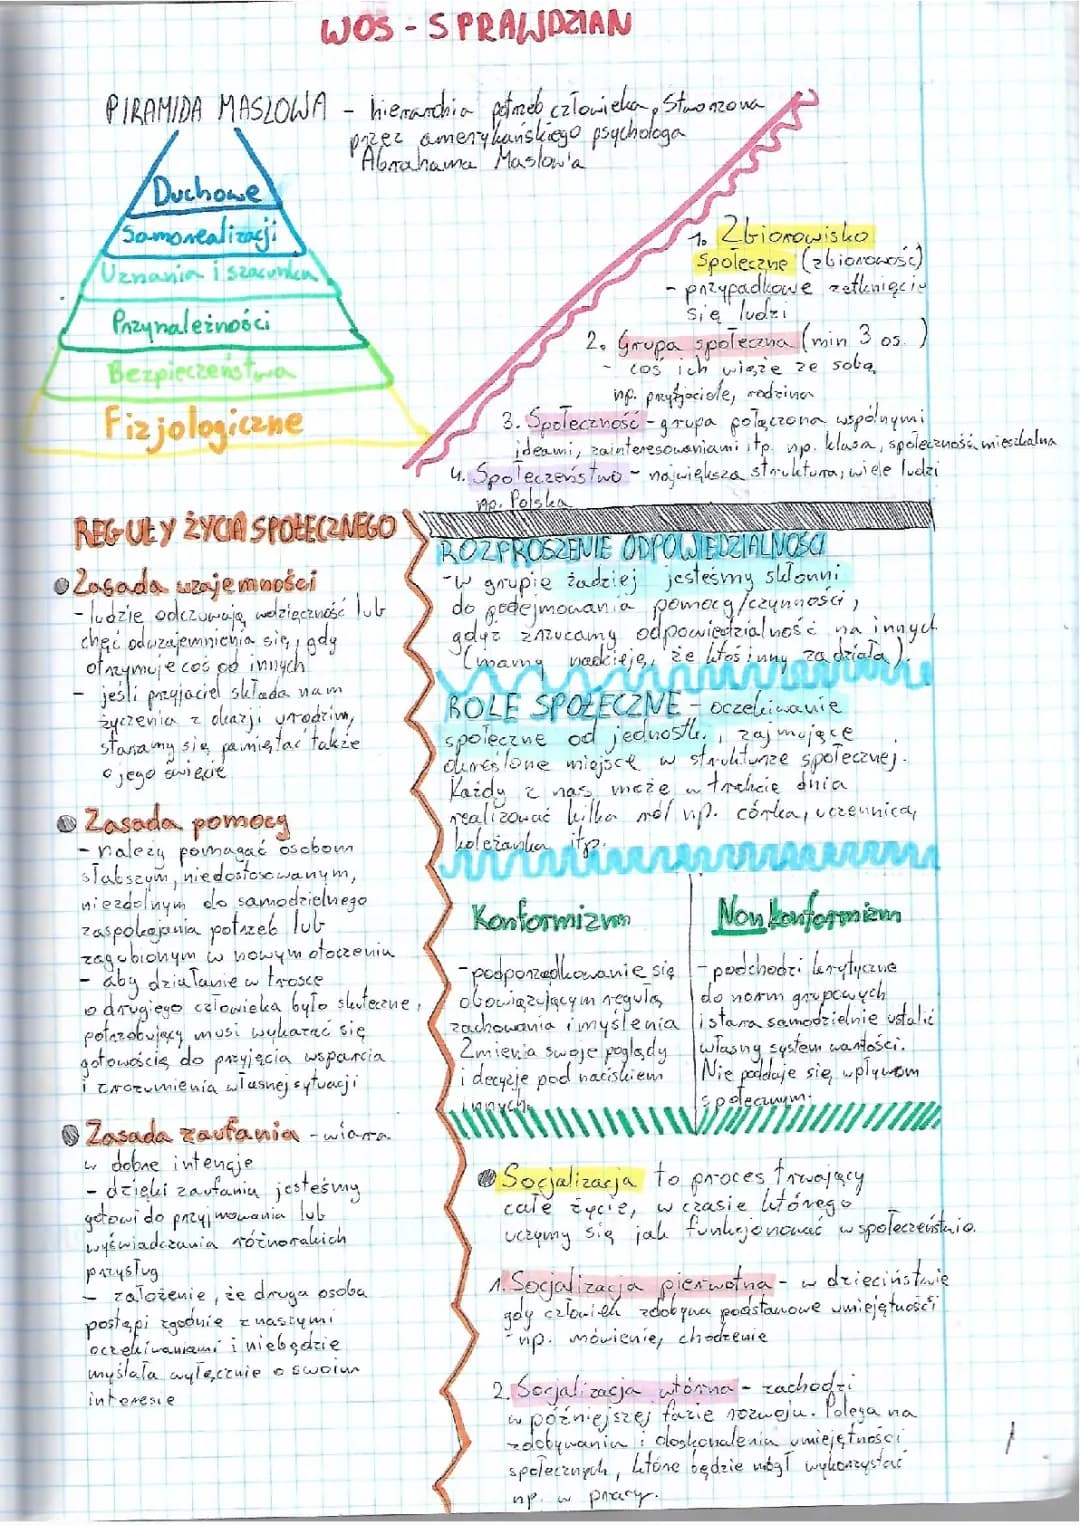 WOS - SPRAWDZIAN
PIRAMIDA MASLOWA - hierarchia potrzeb człowieka, stworzona
przez amerykańskiego psychologa
Abrahama Maslow'a
Duchowe
Samorealizacji
Uznania i szacunku
Przynależności
Bezpieczeństwa
Fizjologiczne
1. Zbiorowisko
społeczne (zbiorowość)
- przypadkowe zetknięcie
się ludzi
2. Grupa społeczna (min 3 os.)
- coś ich wiąże ze sobą,
np. przyjaciele, rodzina
3. Społeczność - grupa połączona wspólnymi
ideami, zainteresowaniami itp. np. klasa, społeczność mieszkalna
4. Społeczeństwo - największa struktura, wiele ludzi
np. Polska
REGUŁY ŻYCIA SPOŁECZNEGO
Zasada wzajemności
- ludzie odczuwają wdzięczność lub
chęć odwzajemnienia się, gdy
otrzymuje coś od innych
- jeśli przyjaciel składa nam
życzenia z okazji urodzin,
staramy się pamiętać także
o jego święcie
Zasada pomocy
- należy pomagać osobom
słabszym, niedostosowanym,
niezdolnym do samodzielnego
zaspokajania potrzeb lub
zagubionym w nowym otoczeniu
- aby działanie w trosce
o drugiego człowieka było skuteczne,
potrzebujący musi wykazać się
gotowością do przyjęcia wsparcia
i zrozumienia własnej sytuacji
Zasada zaufania - wiara
w dobre intencje
- dzięki zaufaniu jesteśmy
gotowi do przyjmowania lub
wyświadczania różnorakich
przysług
- założenie, że druga osoba
postąpi zgodnie z naszymi
oczekiwaniami i niebędzie
myślała wyłącznie o swoim
interesie
ROZPROSZENIE ODPOWIEDZIALNOŚCI
- w grupie żadziej jesteśmy skłonni
do podejmowania pomocy/czynności,
gdyż zrzucamy odpowiedzialność na innych
(mamy nadzieję, że ktoś inny zadziała)
ROLE SPOŁECZNE - oczekiwanie
społeczne od jednostki, zajmujące
określone miejsce w strukturze społecznej.
Każdy z nas może w trakcie dnia
realizować kilka ról np. córka, uczennica,
koleżanka itp.
Konformizm
- podporządkowanie się
obowiązującym regułą
zachowania i myślenia
Zmienia swoje poglądy
i decyzje pod naciskiem
innych.
Nonkonformizm
- podchodzi krytyczne
do norm grupowych
i stara samodzielnie ustalić
własny system wartości.
Nie poddaje się wpływom
społecznym.
Socjalizacja to proces trwający
całe życie, w czasie którego
uczymy się jak funkcjonować w społeczeństwie.
1. Socjalizacja pierwotna - w dzieciństwie
gdy człowiek zdobywa podstawowe umiejętności
np. mówienie, chodzenie
2. Socjalizacja wtórna - zachodzi
w późniejszej fazie rozwoju. Polega na
zdobywaniu i doskonalenia umiejętności
społecznych, które będzie mógł wykorzystać
np. w pracy.
1